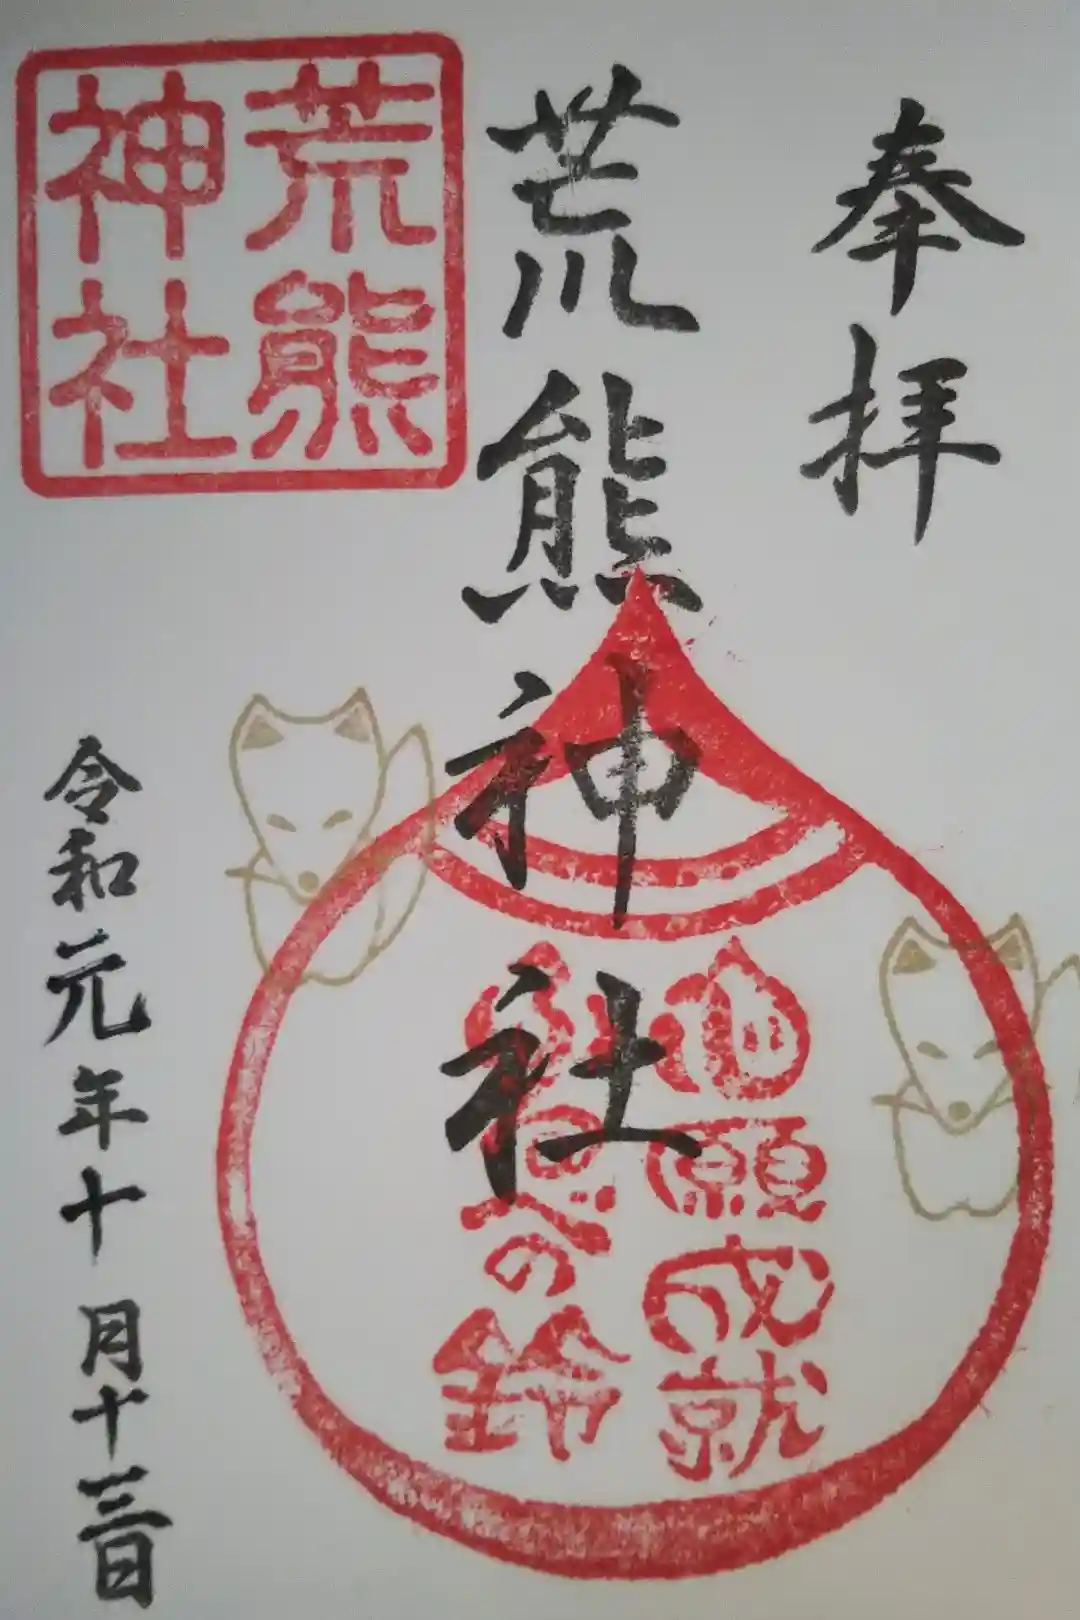 奉拝
荒熊神社
荒熊
神社
願成就
の鈴
令和元年十月十三日